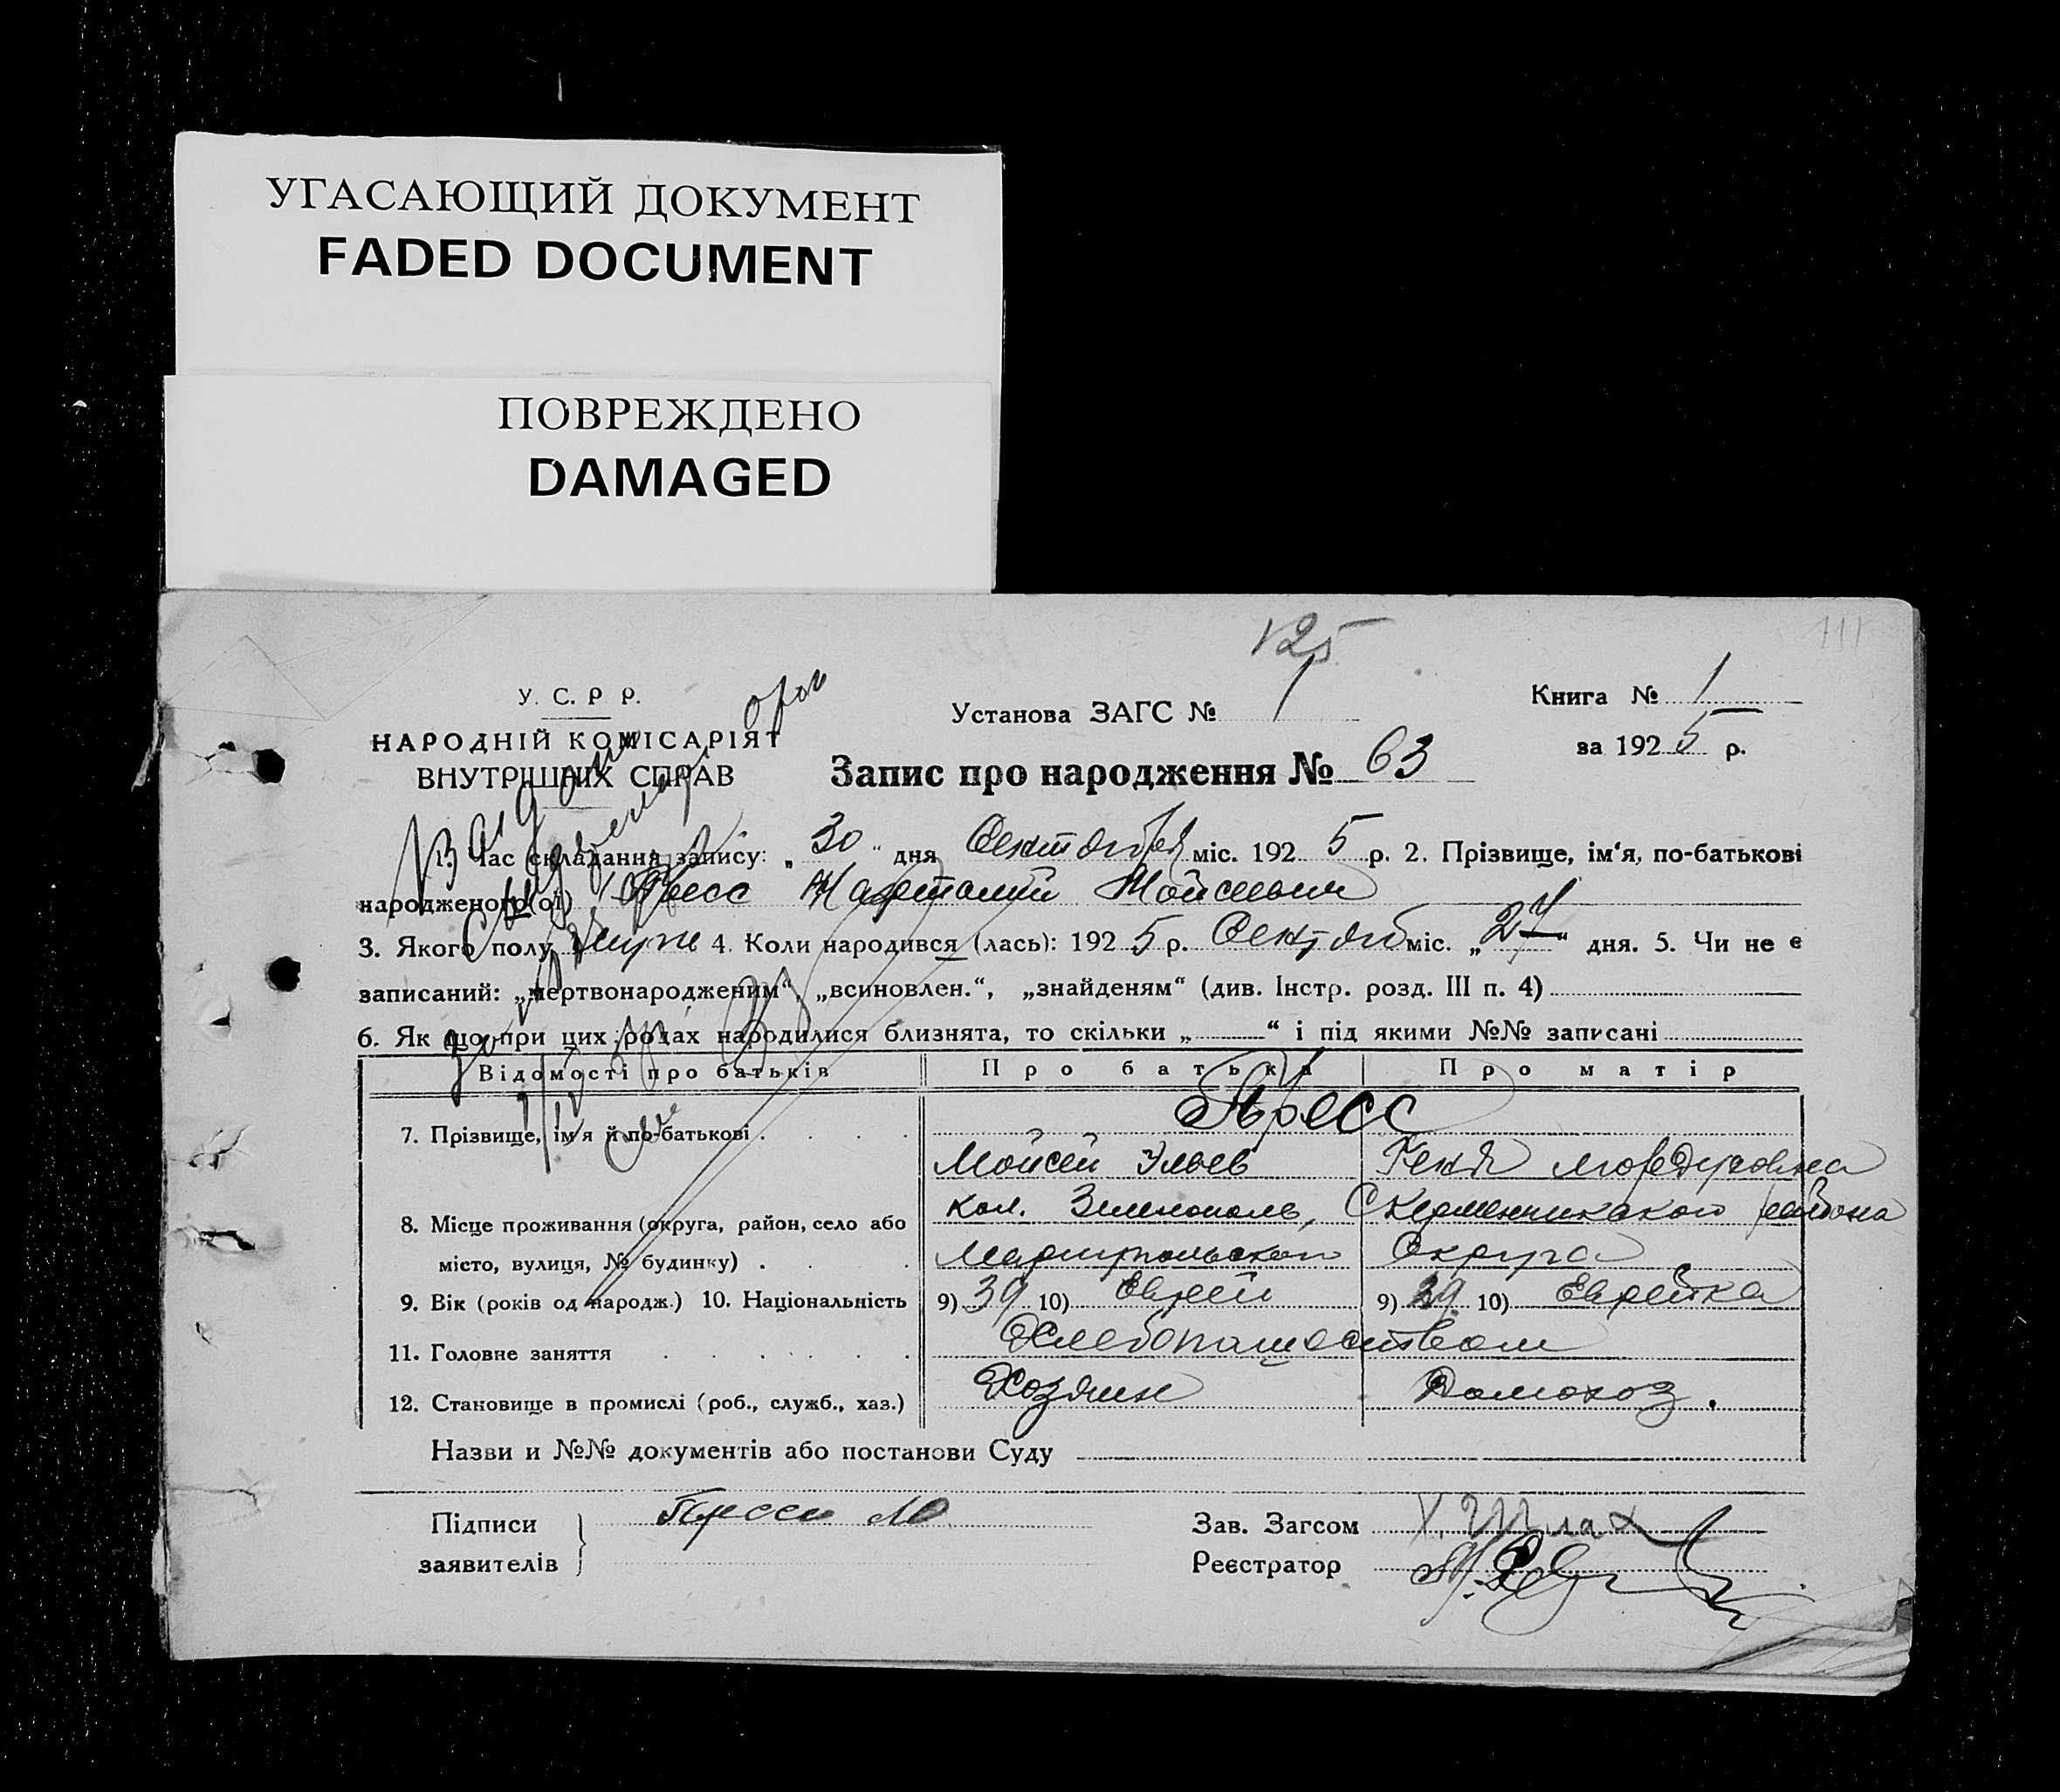 УГАСАЮЩИЙ ДОКУМЕНТ
FADED DOCUMENT
ПОВРЕЖДЕНО
DAMAGED
125
111
У. С. Р Р.
НАРОДНІЙ КОМІСАРІЯТ
ВНУТРІШНІХ СПРАВ
Установа ЗАГС № 1
Книга № 1
за 1925 р.
Запис про народження № 63
1. Час складання запису: „30“ дня Сентября міс. 1925 р. 2. Прізвище, ім‘я, по-батькові
народженого(ої) Пресс Нафталий Мойсеевич
3. Якого полу муж 4. Коли народився (лась): 1925 р. Сентяб міс. „24“ дня. 5. Чи не є
записаний: „мертвонародженим“, „всиновлен.“, „знайденям“ (див. Інстр. розд. III п. 4)
6. Як що при цих родах народилися близнята, то скільки „ “ і під якими №№ записані
Відомості про батьків Про батька Про матір
Пресс
7. Прізвище, ім‘я й по-батькові . . . .
Мойсей Эльев Геня Мордуховна
кол. Зеленополь, Скерменчикского района
8. Місце проживання (округа, район, село або
місто, вулиця, № будинку) . . . Мариупольского Округа
9. Вік (років од народж.) 10. Національність 9) 39 10) Еврей 9) 39 10) Еврейка
11. Головне заняття . . . . . . Хлебопашеством
12. Становище в промислі (роб., служб., хаз.) Хозяин Домохоз.
Назви и №№ документів або постанови Суду
Підписи заявителів } Пресс М
Зав. Загсом
Реєстратор